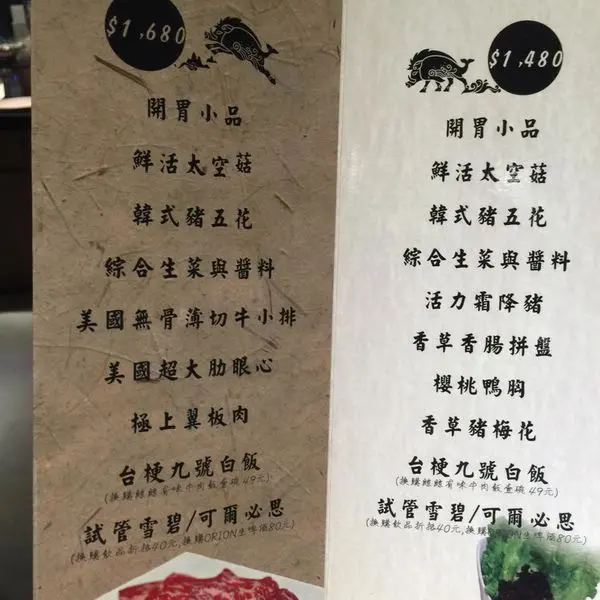 $1,680
開胃小品
鮮活太空菇
韓式豬五花
綜合生菜與醬料
美國無骨薄切牛小排
美國超大肋眼心
極上翼板肉
台梗九號白飯
(換購總總有味牛肉飯壹碗 49元)
試管雪碧/可爾必思
(換購飲品折抵40元,換購ORION生啤酒80元)
$1,480
開胃小品
鮮活太空菇
韓式豬五花
綜合生菜與醬料
活力霜降豬
香草香腸拼盤
櫻桃鴨胸
香草豬梅花
台梗九號白飯
(換購總總有味牛肉飯壹碗 49元)
試管雪碧/可爾必思
(換購飲品折抵40元,換購 生啤酒80元)